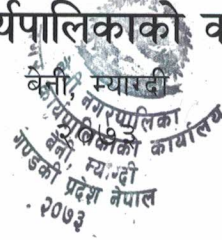 र्यपालिकाको
बेनी, म्याग्दी
बेनी नगरपालिका
कार्यपालिकाको कार्यालय
बेनी, म्याग्दी
गण्डकी प्रदेश नेपाल
२०७३